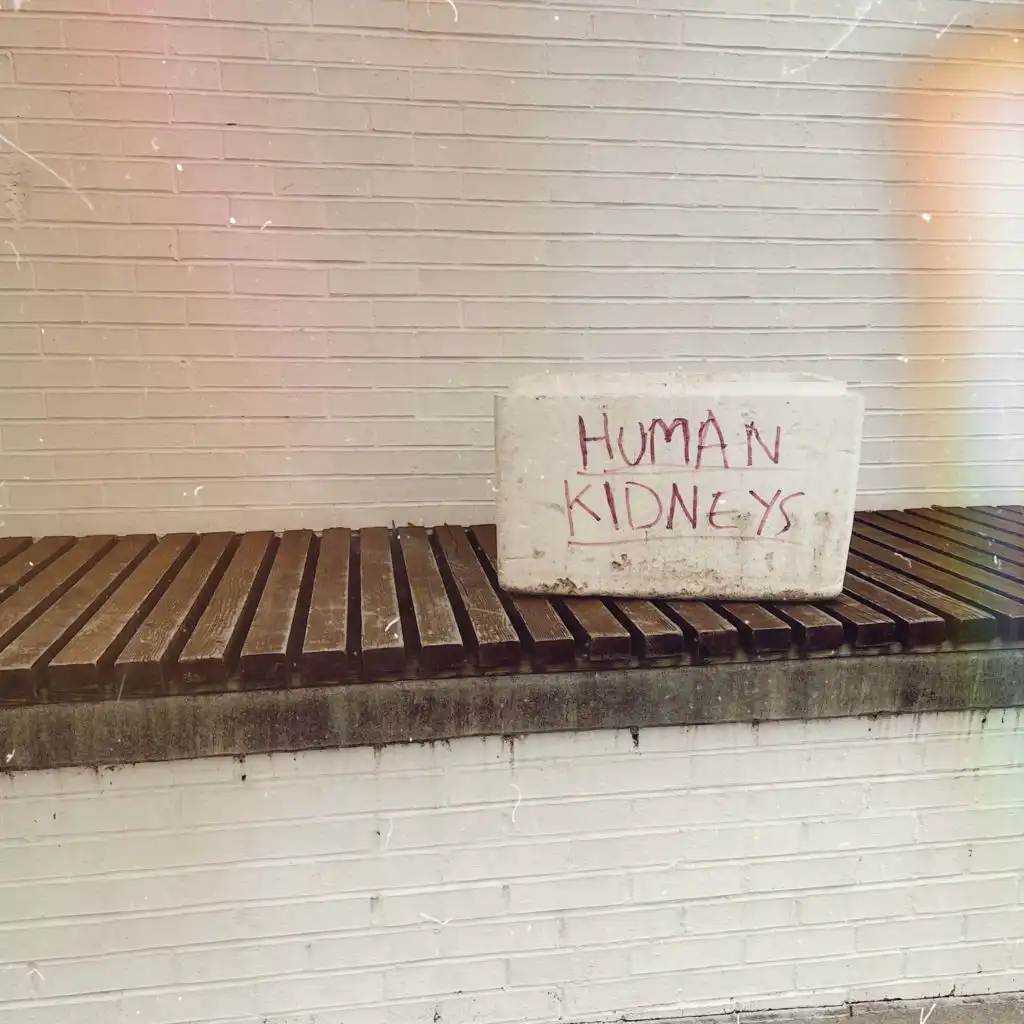 HUMAN
KIDNEYS